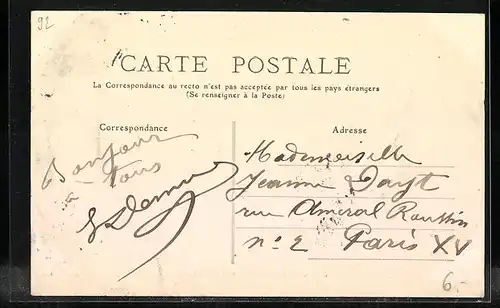 92
CARTE POSTALE
La Correspondance au recto n'est pas acceptée par tous les pays étrangers
(Se renseigner à la Poste)
Correspondance
Adresse
Bonjour
à tous
Mademoiselle
Jeanne
rue Amiral Roussin
n° 2 Paris XV
6.-